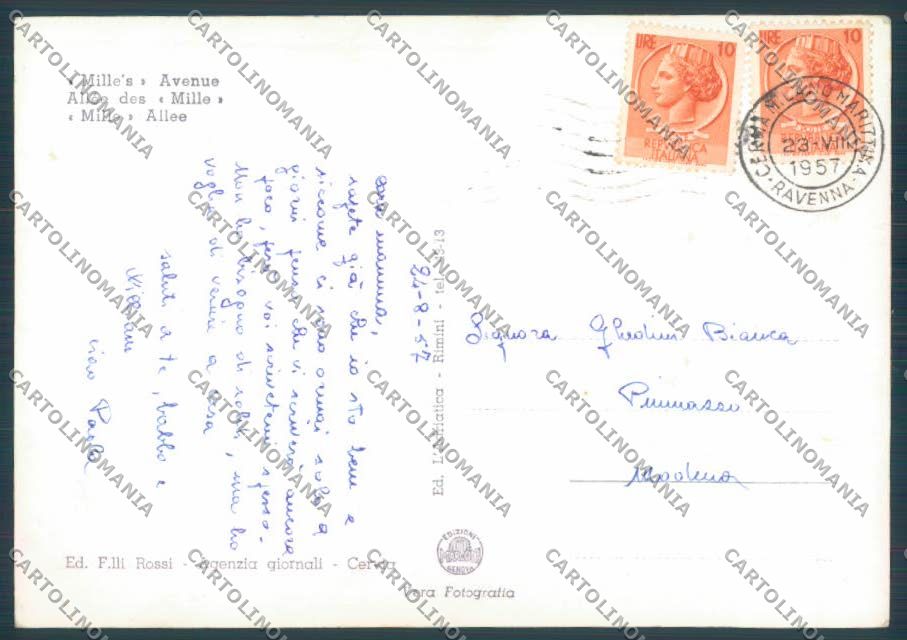 « Mille's » Avenue
Allée des « Mille »
« Mille » Allee
LIRE 10
REPUBBLICA
ITALIANA
LIRE 10
CERVIA MILANO MARITTIMA
23-VIII
1957
RAVENNA
24-8-57
cara mamma,
sapete già che io sto bene e
siccome ci sono ormai solo 2
giorni penso che vi scriverò ancora
poco, però voi scrivetemi spesso.
Non ho bisogno di soldi, ma ho
voglia di venire a casa
saluti a te, babbo e
William
ciao Paola
Signora Ghedini Bianca
Piumazzo
Modena
Ed. F.lli Rossi - Agenzia giornali - Cervia
Ed. L'Adriatica - Rimini - tel.
EDIZIONI
GENOVA
Vera Fotografia
CARTOLINOMANIA